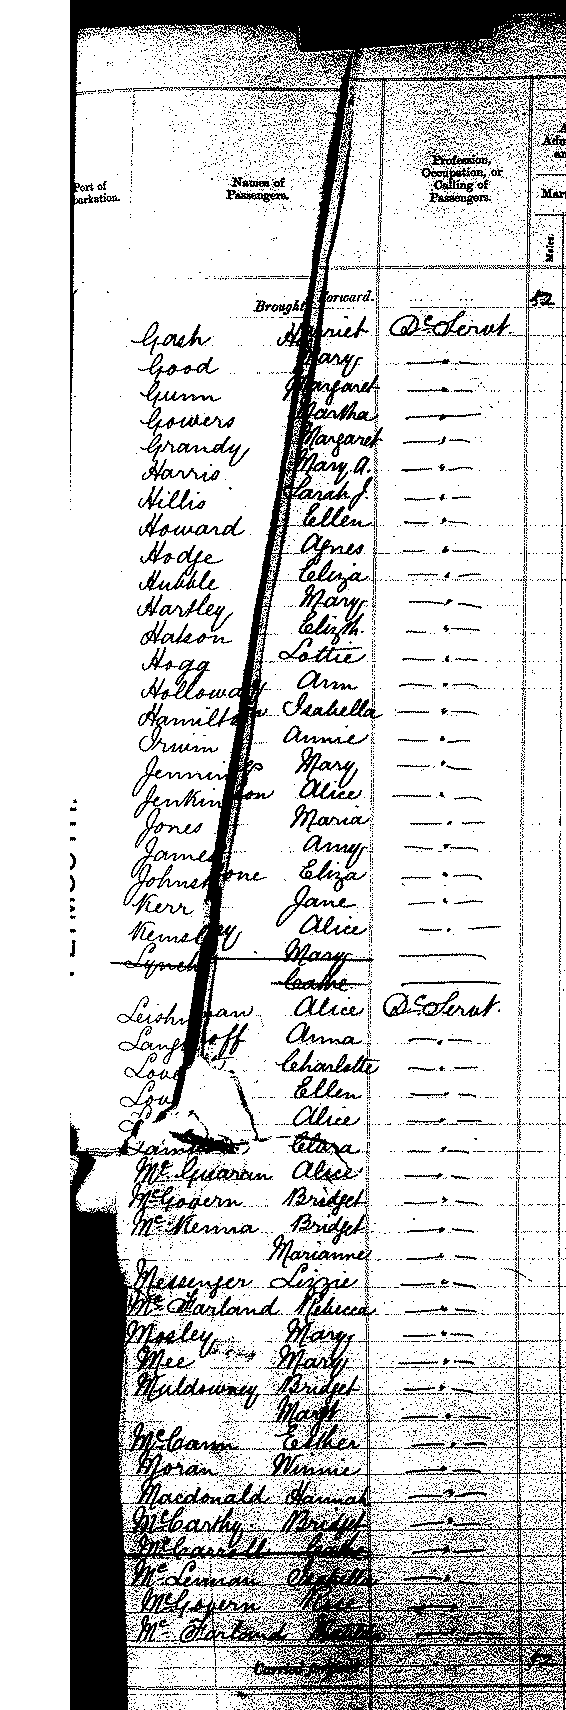 Port of
barkation.
Names of
Passengers.
Profession,
Occupation, or
Calling of
Passengers.
Males.
Brought forward. 52
Gash Harriet Dc Servt.
Good Mary —"—
Gunn Margaret —"—
Gowers Martha —"—
Grandy Margaret —"—
Harris Mary A. —"—
Hillis Sarah J. —"—
Howard Ellen —"—
Hodge Agnes —"—
Hubble Eliza —"—
Hartley Mary —"—
Hatson Elizth. —"—
Hogg Lottie —"—
Holloway Ann —"—
Hamilton Isabella —"—
Irwin Annie —"—
Jennings Mary —"—
Jenkinson Alice —"—
Jones Maria —"—
James Amy —"—
Johnstone Eliza —"—
Kerr Jane —"—
Kemsley Alice —"—
Lynch Mary ——
Cathe ——
Leishman Alice Dc Servt.
Langhoff Anna —"—
Love Charlotte —"—
Lov Ellen —"—
Alice —"—
Clara —"—
Mc Guaran Alice —"—
McGovern Bridget —"—
Mc Kenna Bridget —"—
Marianne —"—
Messenger Lizzie —"—
Mc Farland Rebecca —"—
Mosley Mary —"—
Mee Mary —"—
Muldowney Bridget —"—
Margt —"—
McCann Esther —"—
Moran Winnie —"—
Macdonald Hannah —"—
McCarthy Bridget —"—
McCarroll Cathe —"—
Mc Lennan Isabella —"—
McGovern Rose —"—
Mc Farland —"—
Carried forward 52